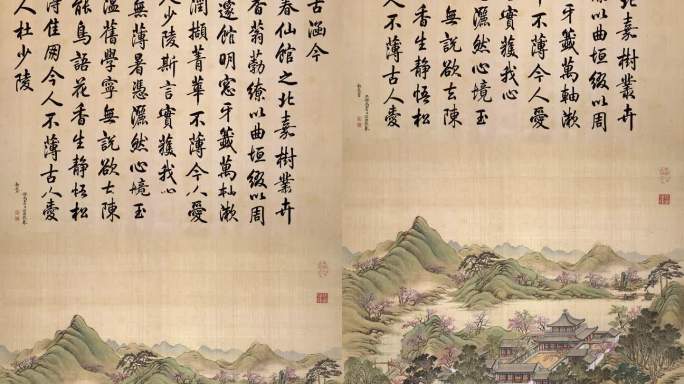 古涵今
春仙館之北嘉樹叢卉
香蓊葧繚以曲垣綴以周
邃館明窓牙籤萬軸漱
潤擷菁華不薄今人愛
人少陵斯言實獲我心
無薄暑憑灑然心境玉
溫舊學寧無說欲去陳
能鳥語花香生静悟松
得佳朋今人不薄古人愛
人杜少陵
北嘉樹叢卉
繚以曲垣綴以周
窓牙籤萬軸漱
華不薄今人愛
言實獲我心
灑然心境玉
寧無說欲去陳
香生静悟松
今人不薄古人愛